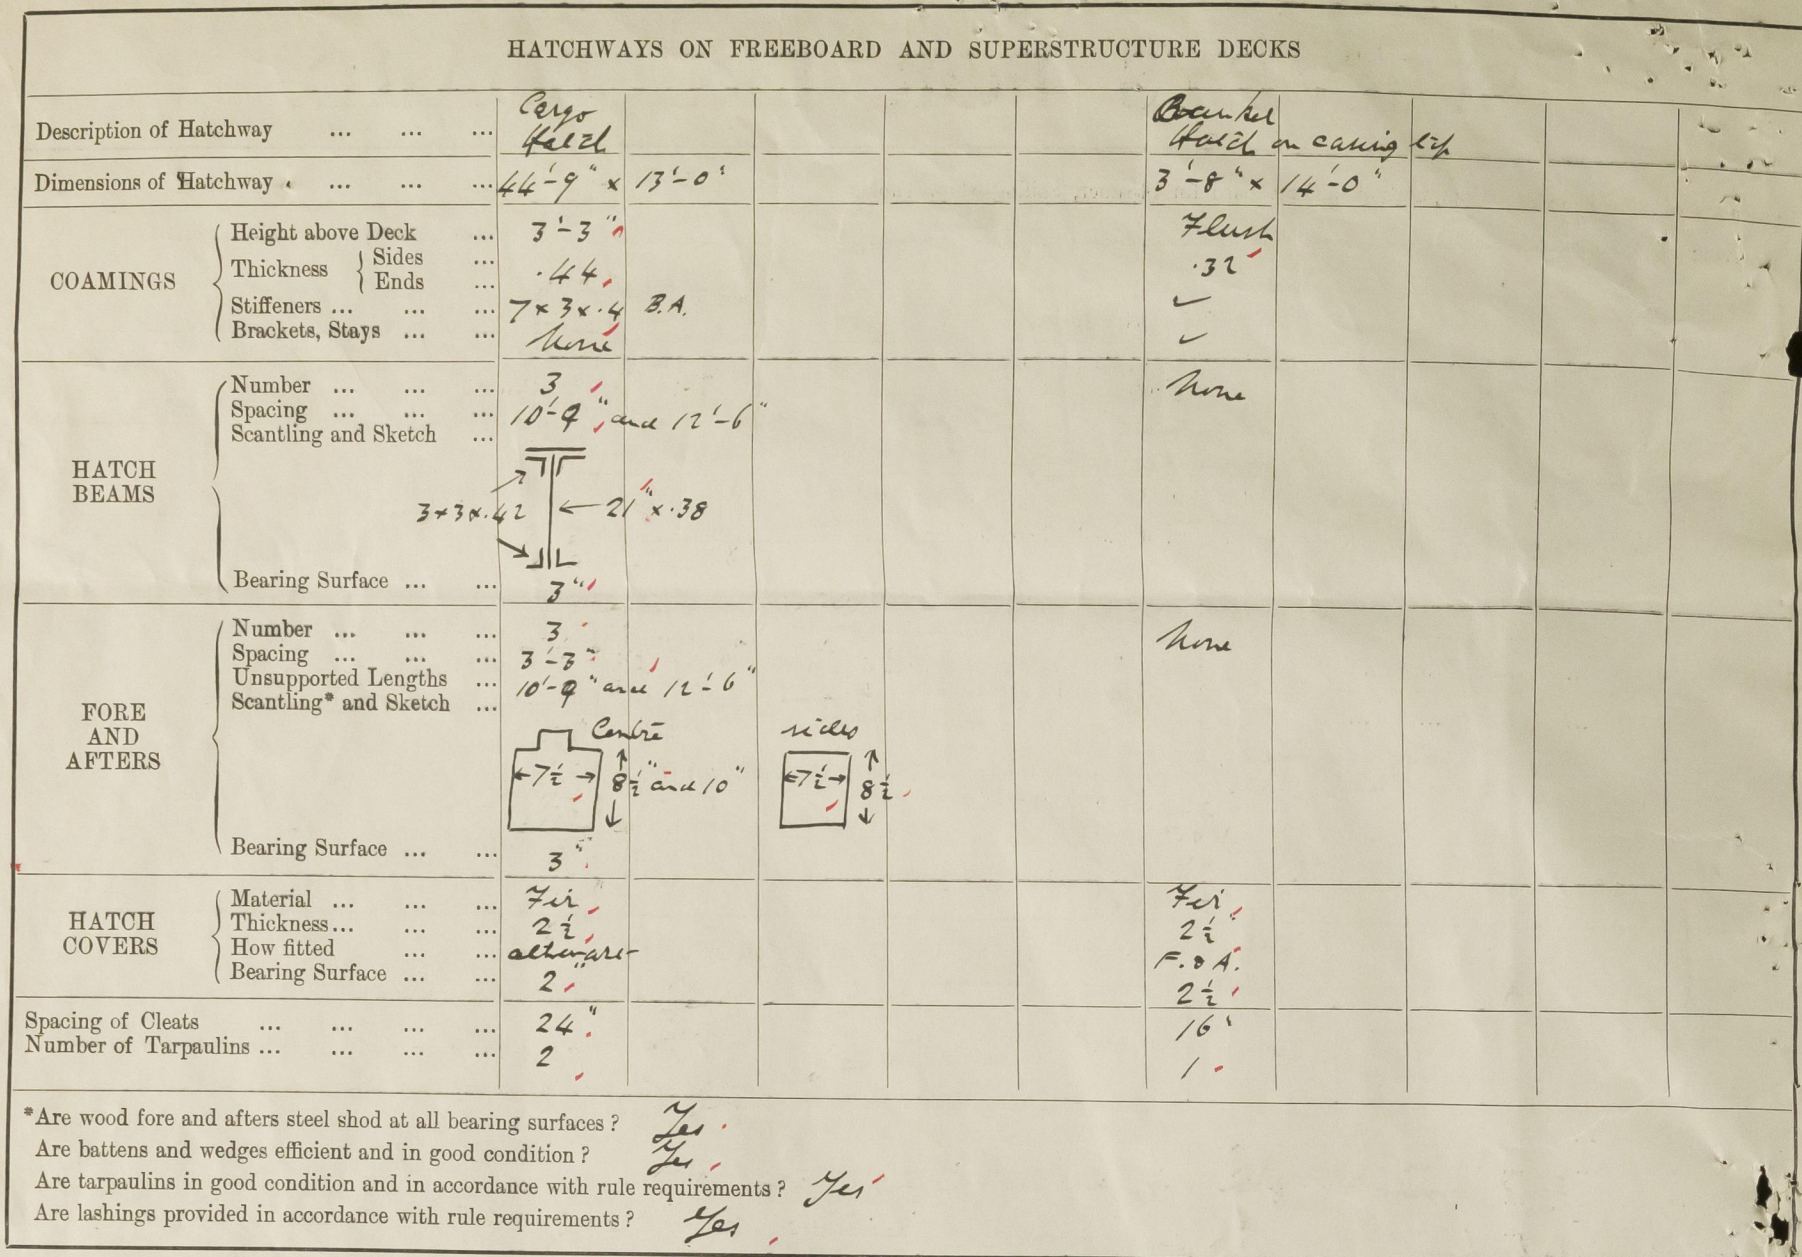 HATCHWAYS ON FREEBOARD AND SUPERSTRUCTURE DECKS
Description of Hatchway ... ... ... Cargo Hatch Bunker Hatch on casing top
Dimensions of Hatchway ... ... ... 44'-9" x 13'-0" 3'-8" x 14'-0"
COAMINGS
Height above Deck ... 3'-3" Flush
Thickness Sides ... Ends ... .44 .32
Stiffeners ... ... ... 7 x 3 x .4 B.A. ✓
Brackets, Stays ... ... None ✓
HATCH BEAMS
Number ... ... ... 3 None
Spacing ... ... ... 10'-9" and 12'-6"
Scantling and Sketch ...
3 x 3 x .42 21" x .38
Bearing Surface ... ... 3"
FORE AND AFTERS
Number ... ... ... 3 None
Spacing ... ... ... 3'-3"
Unsupported Lengths ... 10'-9" and 12'-6"
Scantling* and Sketch ...
Centre sides
7½ 8½" and 10" 7½ 8½
Bearing Surface ... ... 3"
HATCH COVERS
Material ... ... ... Fir Fir
Thickness... ... ... 2½ 2½"
How fitted ... ... F. & A.
Bearing Surface ... ... 2" 2½
Spacing of Cleats ... ... ... ... 24" 16"
Number of Tarpaulins ... ... ... ... 2 1
*Are wood fore and afters steel shod at all bearing surfaces? Yes
Are battens and wedges efficient and in good condition? Yes
Are tarpaulins in good condition and in accordance with rule requirements? Yes
Are lashings provided in accordance with rule requirements? Yes